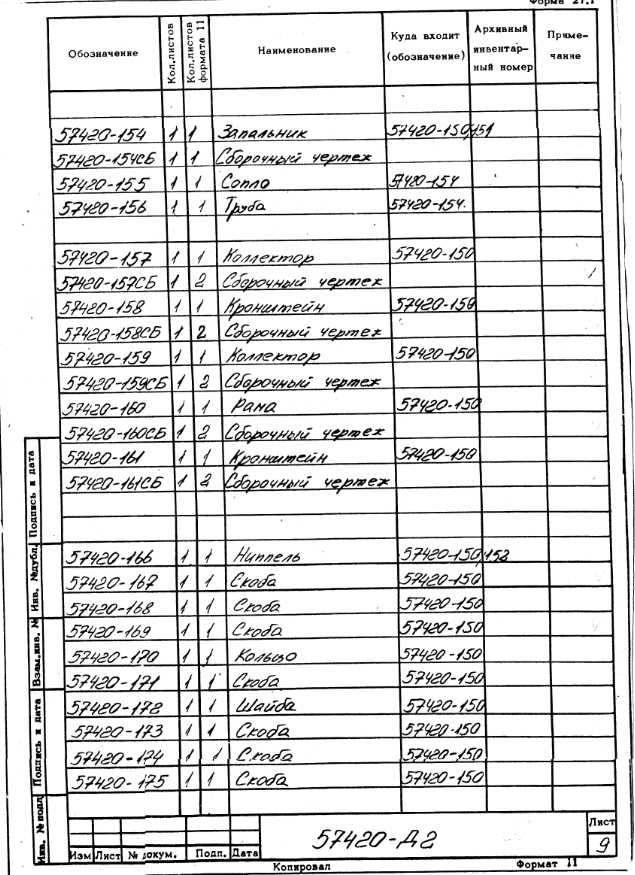 Форма 27.1
Обозначение Кол.листов Кол.листов формата 11 Наименование Куда входит (обозначение) Архивный инвентарный номер Примечание
57420-154 1 1 Запальник 57420-150,151
57420-154СБ 1 1 Сборочный чертеж
57420-155 1 1 Сопло 57420-154
57420-156 1 1 Труба 57420-154.
57420-157 1 1 Коллектор 57420-150
57420-157СБ 1 2 Сборочный чертеж
57420-158 1 1 Кронштейн 57420-150
57420-158СБ 1 2 Сборочный чертеж
57420-159 1 1 Коллектор 57420-150
57420-159СБ 1 2 Сборочный чертеж
57420-160 1 1 Рама 57420-150
57420-160СБ 1 2 Сборочный чертеж
57420-161 1 1 Кронштейн 57420-150
57420-161СБ 1 2 Сборочный чертеж
57420-166 1 1 Ниппель 57420-150,152
57420-167 1 1 Скоба 57420-150
57420-168 1 1 Скоба 57420-150
57420-169 1 1 Скоба 57420-150
57420-170 1 1 Кольцо 57420-150
57420-171 1 1 Скоба 57420-150
57420-172 1 1 Шайба 57420-150
57420-173 1 1 Скоба 57420-150
57420-174 1 1 Скоба 57420-150
57420-175 1 1 Скоба 57420-150
Инв. № подл. Подпись и дата Взам.инв. № Инв. № дубл. Подпись и дата
57420-Д2
Лист
9
Изм Лист № докум. Подп. Дата
Копировал Формат 11